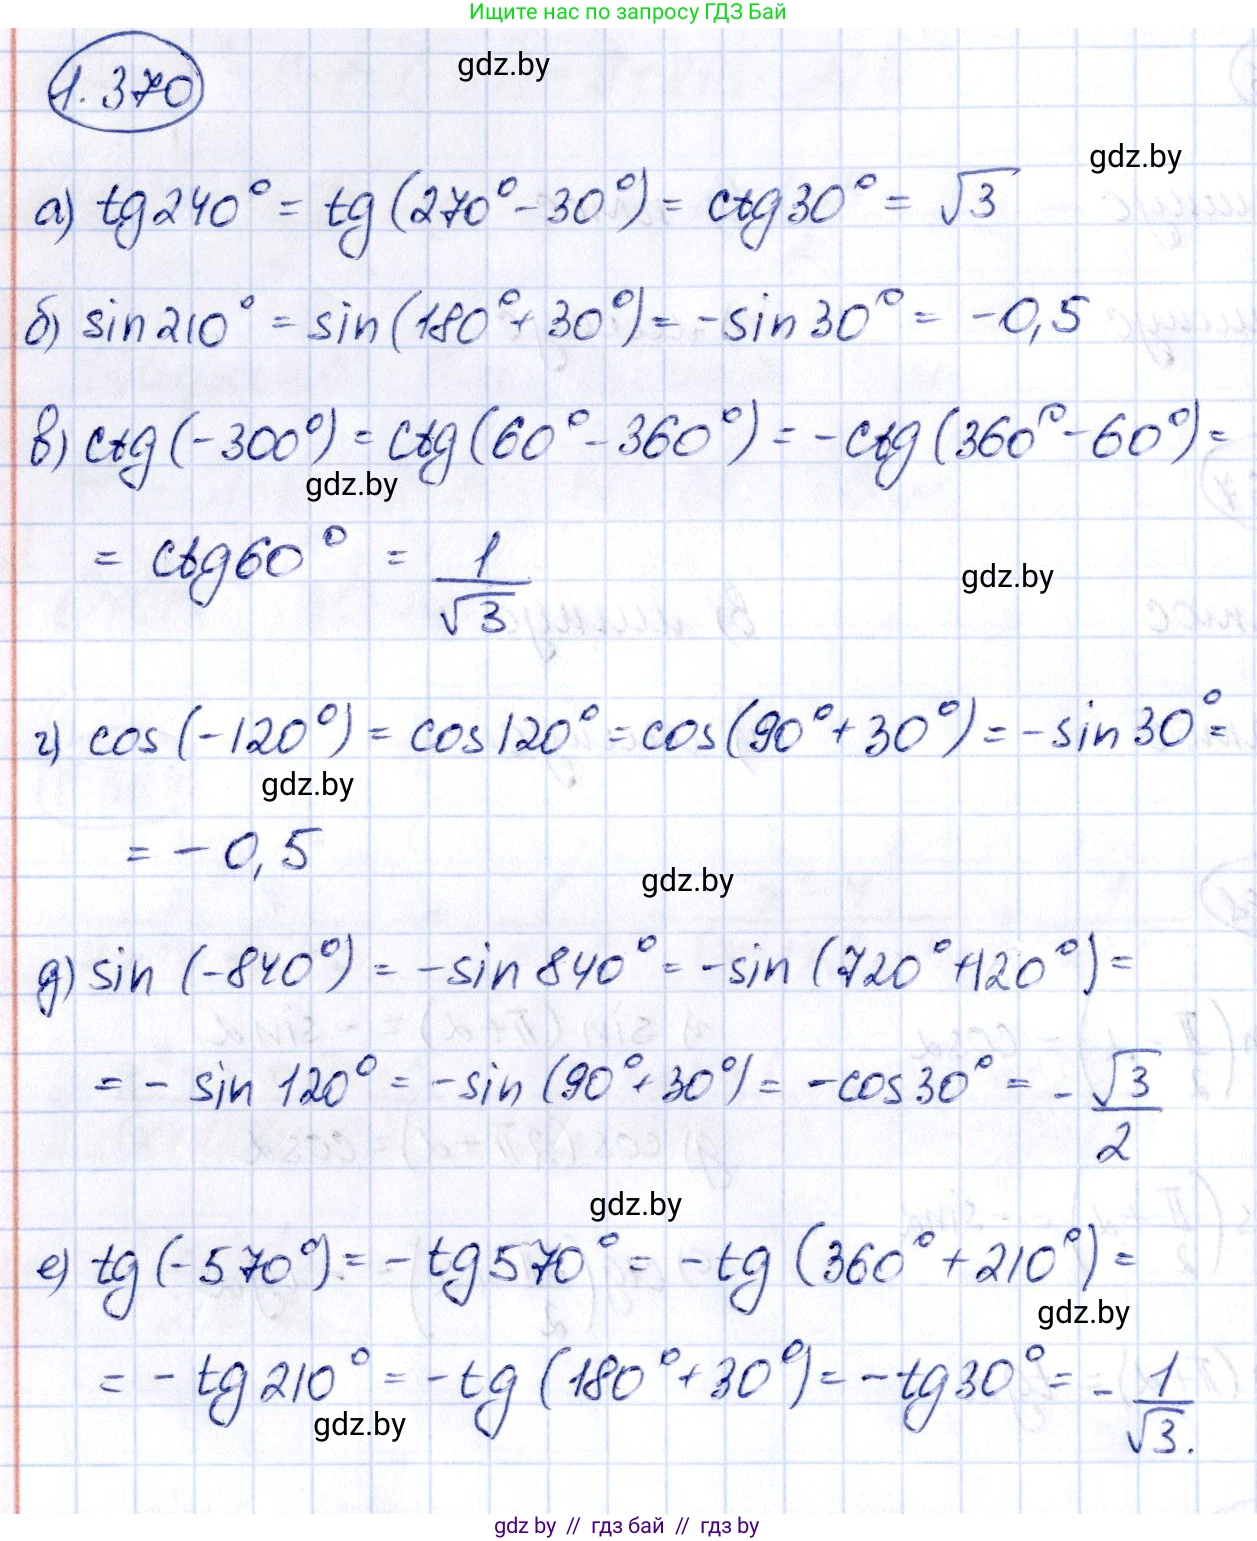 Ищите нас по запросу ГДЗ Бай
1.370
gdz.by
gdz.by
а) tg240° = tg(270°-30°) = ctg30° = √3
б) sin210° = sin(180°+30°) = -sin30° = -0,5
в) ctg(-300°) = ctg(60°-360°) = -ctg(360°-60°) =
gdz.by
= ctg60° = 1/√3
gdz.by
г) cos(-120°) = cos120° = cos(90°+30°) = -sin30° =
gdz.by
= -0,5
gdz.by
д) sin(-840°) = -sin840° = -sin(720°+120°) =
= -sin120° = -sin(90°+30°) = -cos30° = -√3/2
gdz.by
е) tg(-570°) = -tg570° = -tg(360°+210°) =
gdz.by
= -tg210° = -tg(180°+30°) = -tg30° = -1/√3.
gdz.by
gdz by // гдз бай // гдз by